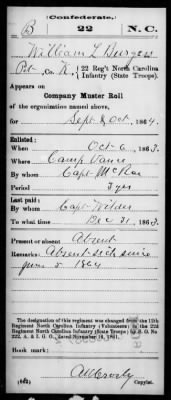 (Confederate.)
B 22 N.C.
William L Burgess
Pvt, Co. K, 22 Reg't North Carolina
Infantry (State Troops).
Appears on
Company Muster Roll
of the organization named above,
for Sept & Oct, 1864.
Enlisted:
When Oct 6, 1863.
Where Camp Vance
By whom Capt McRae
Period 3 yrs
Last paid:
By whom Capt Wilder
To what time Dec 31, 1863.
Present or absent Absent
Remarks: Absent sick since
June 5 1864
The designation of this regiment was changed from the 12th
Regiment North Carolina Infantry (Volunteers) to the 22d
Regiment North Carolina Infantry (State Troops) by S. O. No.
222, A. & I. G. O., dated November 14, 1861.
Book mark:
(642) Copyist.